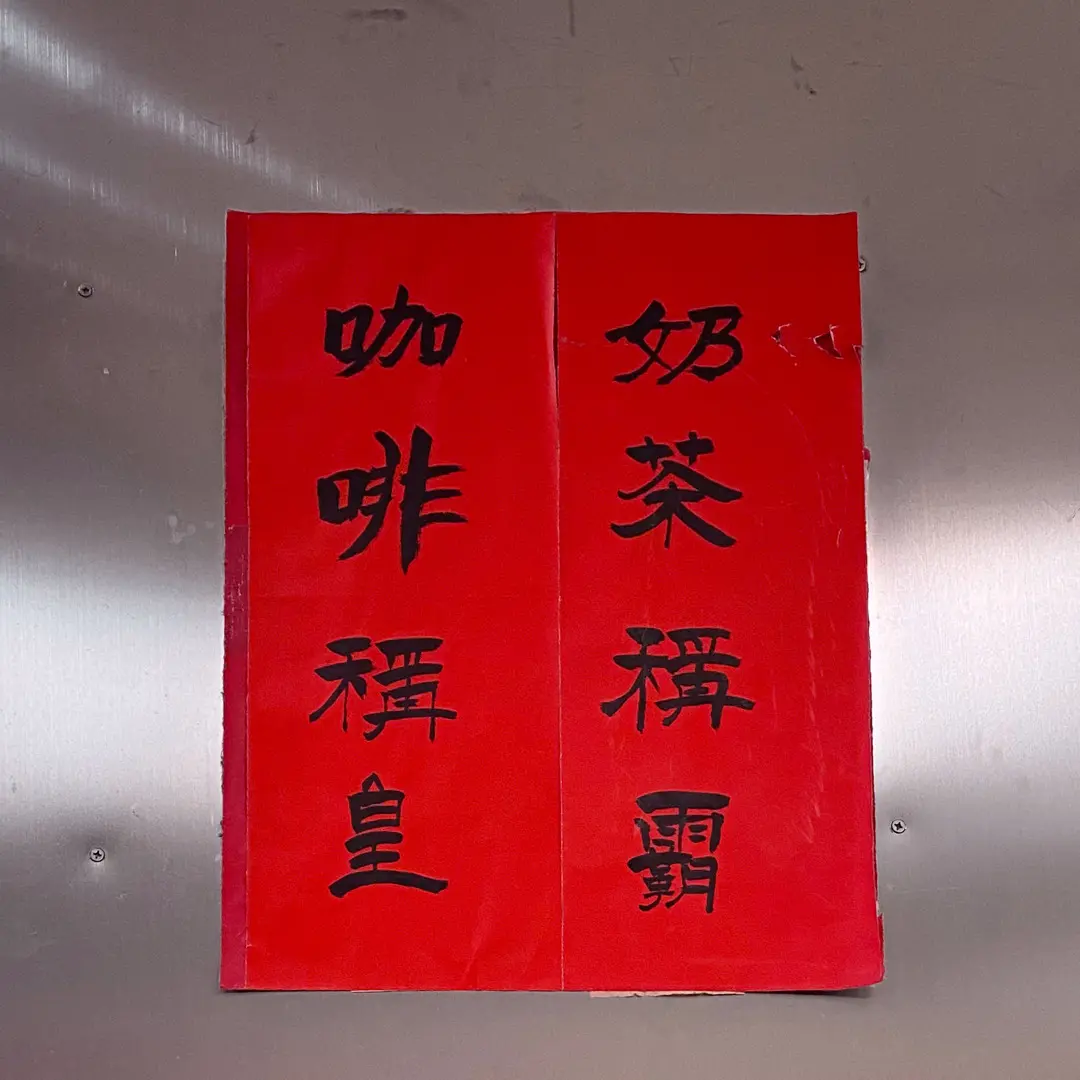 奶茶稱霸
咖啡稱皇